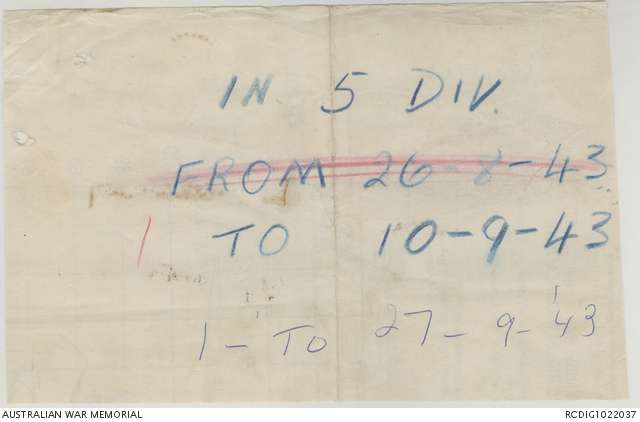 IN 5 DIV.
FROM 26-8-43
1 TO 10-9-43
1 - TO 27-9-43
AUSTRALIAN WAR MEMORIAL
RCDIG1022037